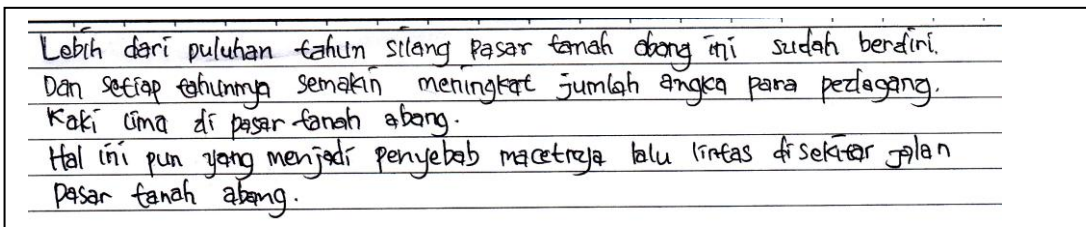 Lebih dari puluhan tahun silang pasar tanah abang ini sudah berdiri.
Dan setiap tahunnya semakin meningkat jumlah angka para pedagang.
Kaki lima di pasar tanah abang.
Hal ini pun yang menjadi penyebab macetnya lalu lintas di sekitar jalan
pasar tanah abang.